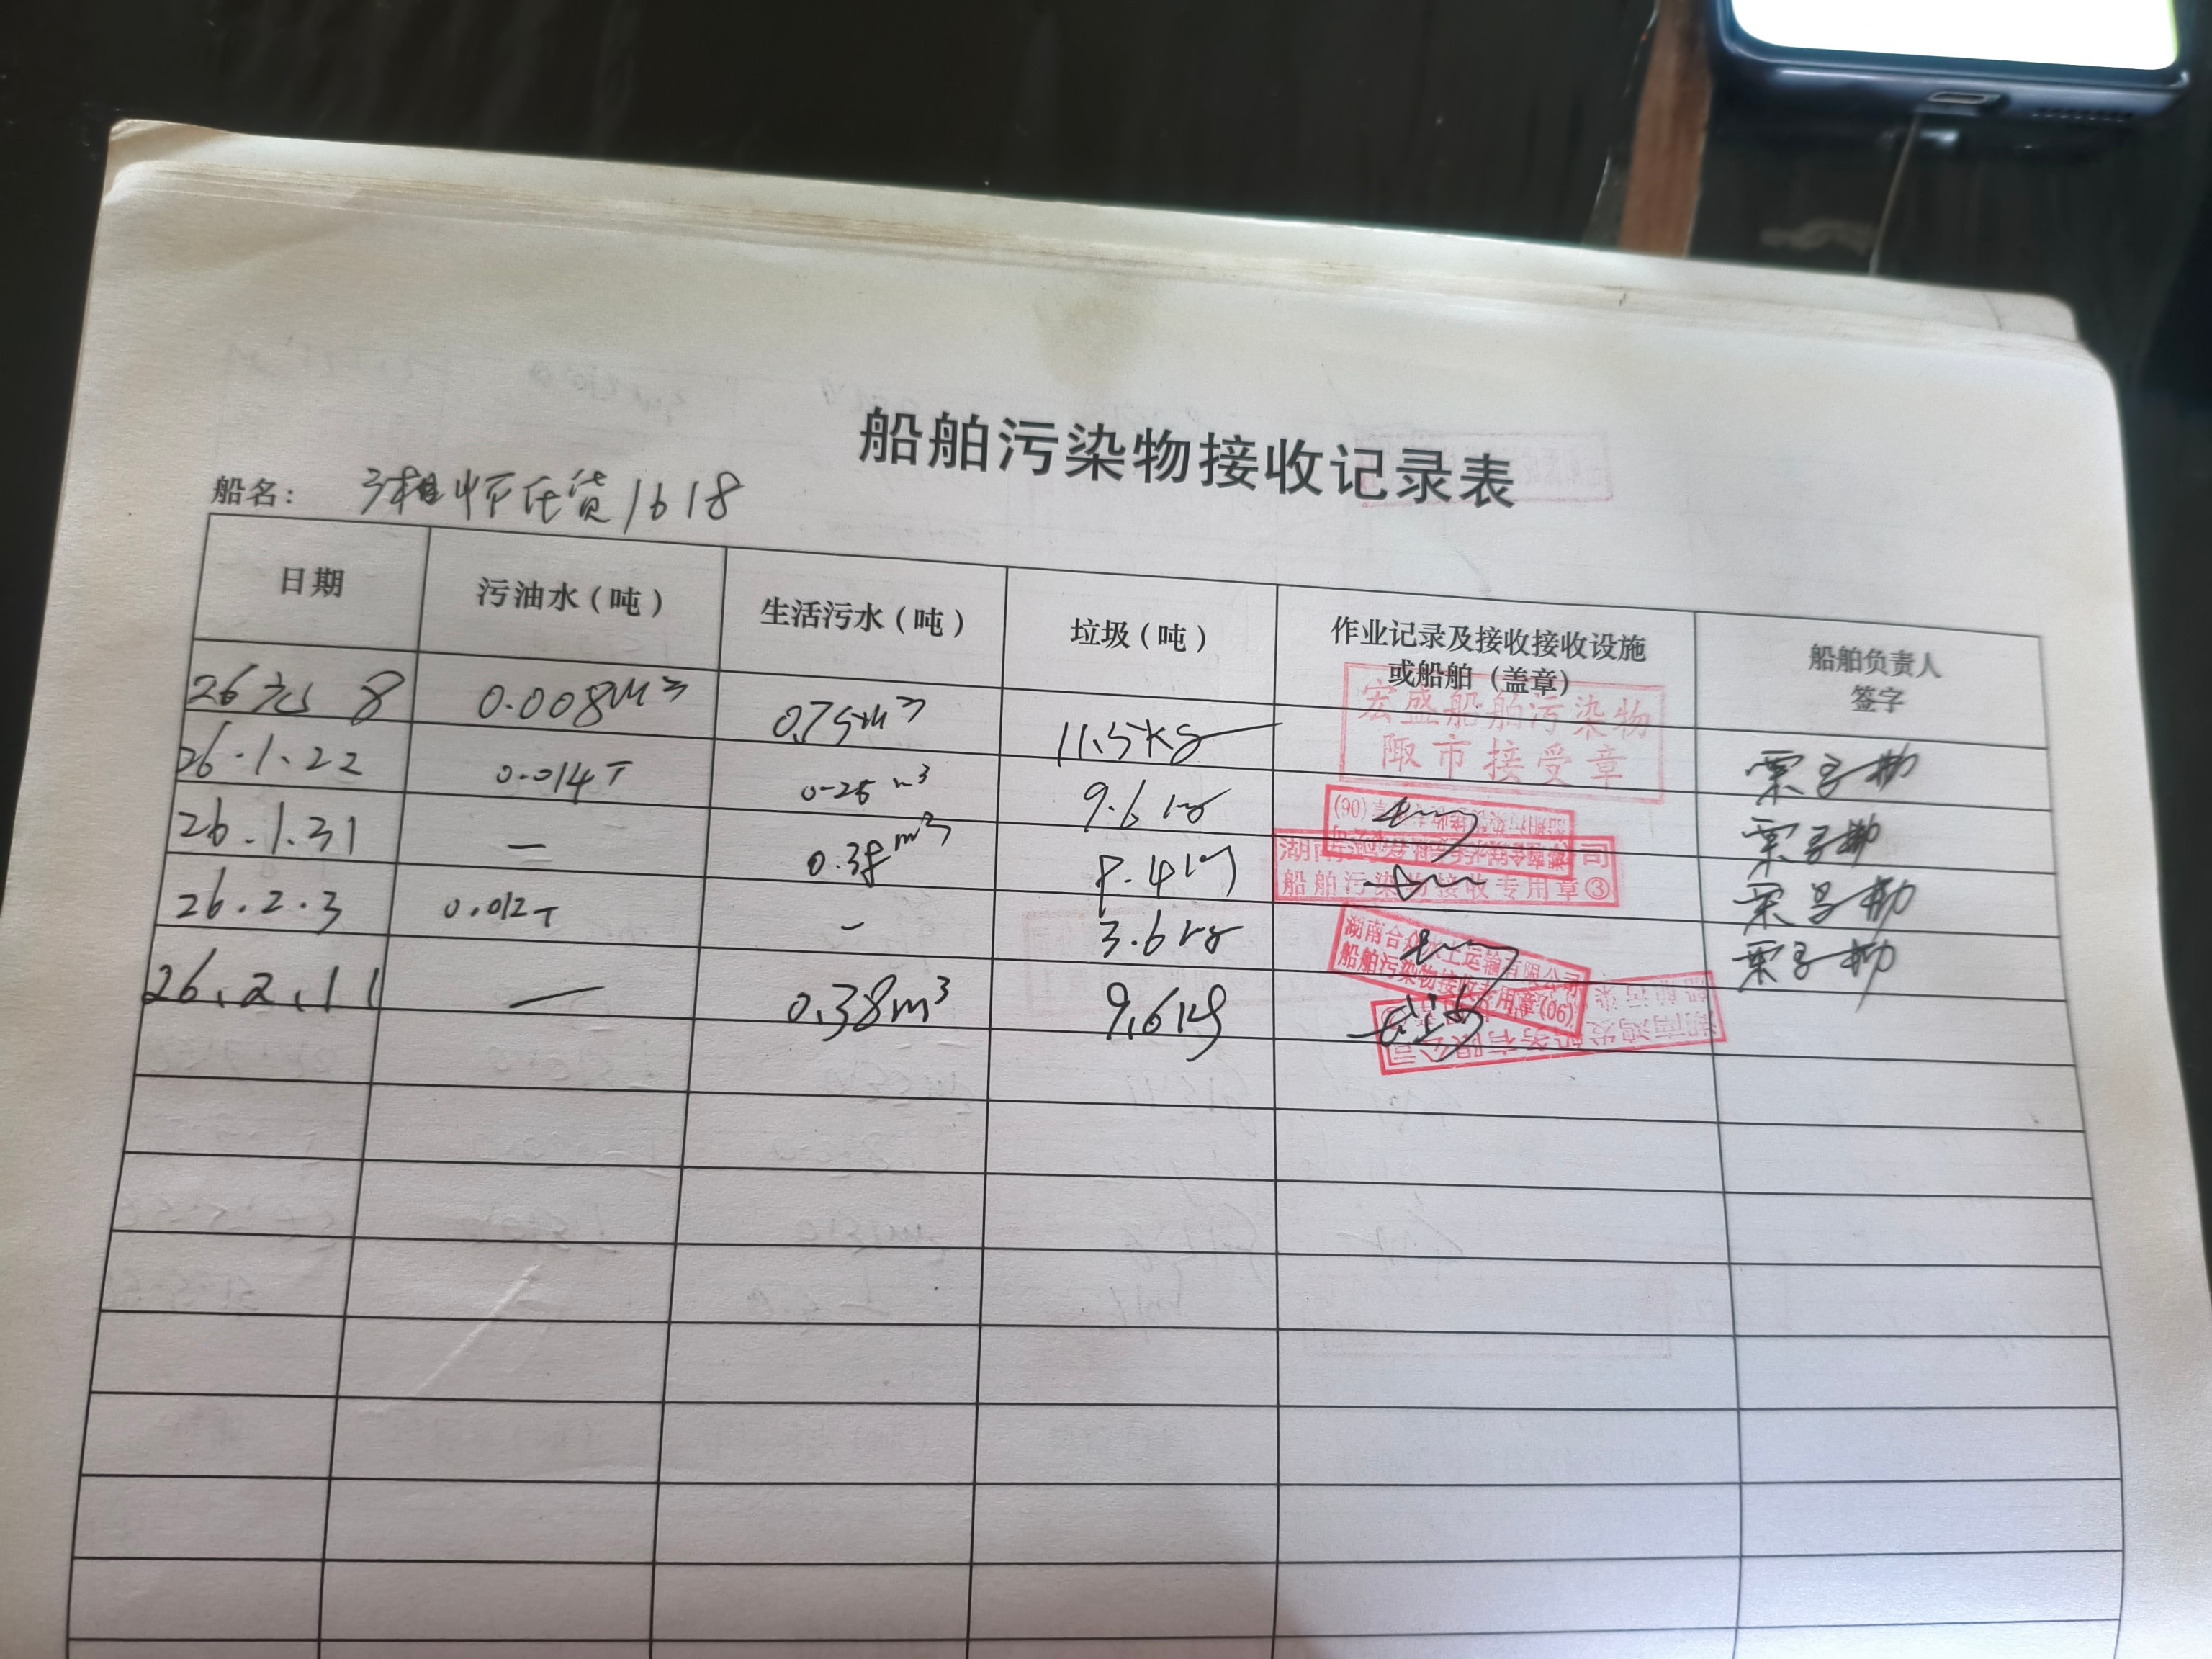 船舶污染物接收记录表
船名: 湘怀任货1618
日期 污油水(吨) 生活污水(吨) 垃圾(吨) 作业记录及接收接收设施或船舶(盖章) 船舶负责人签字
26元 8 0.008M³ 0.75M³ 11.5kg 宏盛船舶污染物
陬市接受章
26.1.22 0.014T 0.25m³ 9.6kg
26.1.31 — 0.38m³ 8.4kg
船舶污染物接收专用章③
26.2.3 0.012T — 3.6kg
船舶污染物接收专用章(06)
26.2.11 — 0.38m³ 9.6kg
湖南鸿发船务有限公司